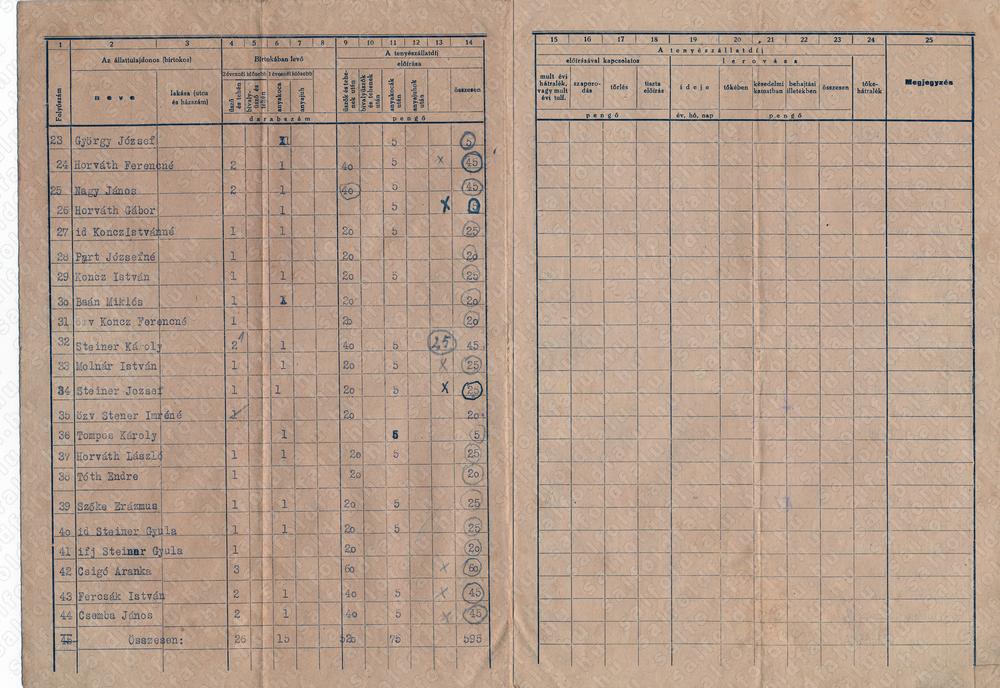 1 2 3 4 5 6 7 8 9 10 11 12 13 14
Folyószám
Az állattulajdonos (birtokos)
neve
lakása (utca és házszám)
Birtokában levő
2 évesnél idősebb
1 évesnél idősebb
üsző és tehén
bivalyüsző és tehén
anyakoca
anyajuh
darabszám
A tenyészállatdíj
előírása
üszők és tehenek után
bivalyüszők és tehenek után
anyakocák után
anyajuhok után
összesen
pengő
23 György József 1 5 5
24 Horváth Ferencné 2 1 4o 5 x 45
25 Nagy János 2 1 4o 5 45
26 Horváth Gábor 1 5 X
27 id KonczIstvánné 1 1 2o 5 25
28 Part Józsefné 1 2o 2o
29 Koncz István 1 1 2o 5 25
3o Baán Miklós 1 2o 2o
31 özv Koncz Ferencné 1 2o 2o
32 Steiner Károly 2 1 1 4o 5 25 45
33 Molnár István 1 1 2o 5 x 25
34 Steiner Jozsef 1 1 2o 5 x 25
35 özv Stener Imréné 1 2o 2o
36 Tompos Károly 1 5 5
37 Horváth László 1 1 2o 5 25
38 Tóth Endre 1 2o 2o
39 Szőke Erázmus 1 1 2o 5 25
4o id Steiner Gyula 1 1 2o 5 25
41 ifj Steinar Gyula 1 2o 2o
42 Csigó Aranka 3 6o x 6o
43 Fercsák István 2 1 4o 5 x 45
44 Csemba János 2 1 4o 5 x 45
45 Összesen: 26 15 52o 75 595
15 16 17 18 19 20 21 22 23 24 25
A tenyészállatdíj
előírásával kapcsolatos
lerovása
mult évi hátralék, vagy mult évi tulf.
szaporodás
törlés
tiszta előírás
ideje
tőkében
késedelmi kamatban
behajtási illetékben
összesen
tőkehátralék
Megjegyzés
pengő
év, hó, nap
pengő